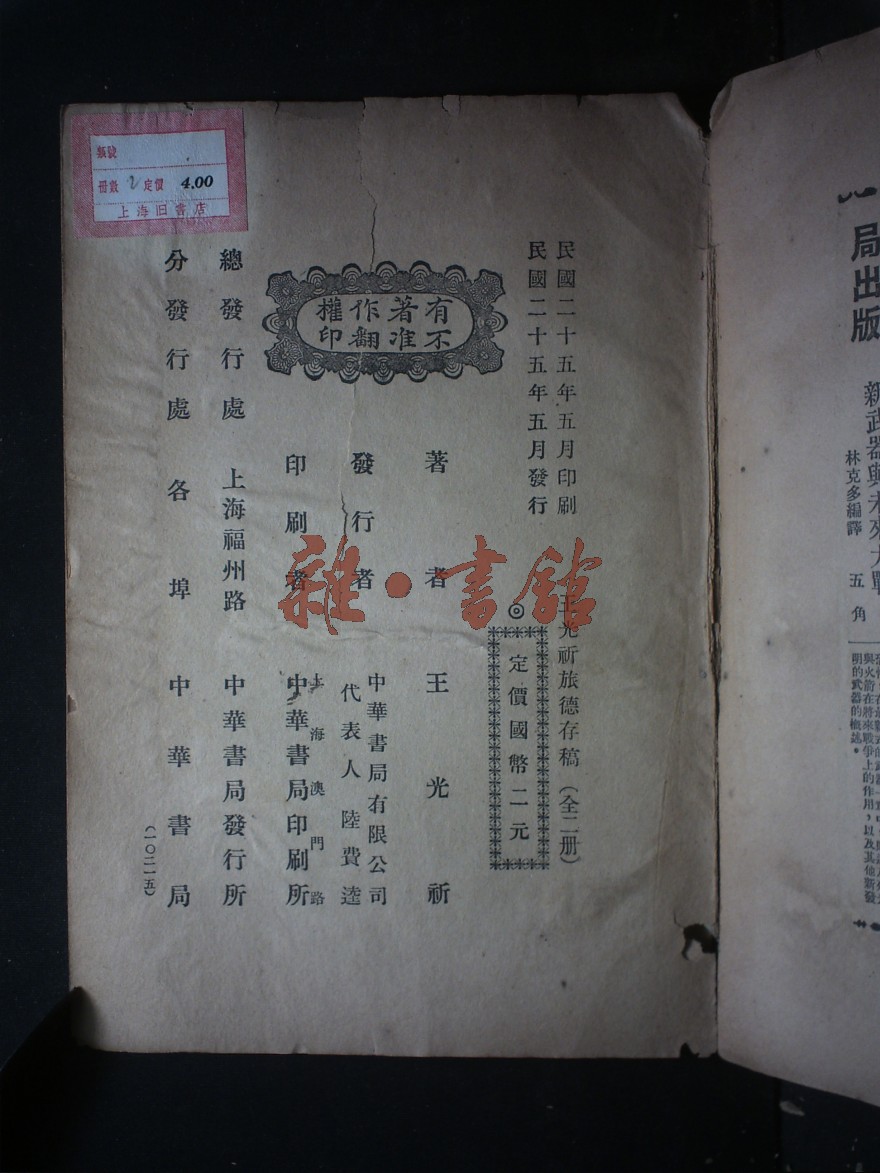 類號
冊數 2 定價 4.00
上海旧書店
民國二十五年五月印刷
民國二十五年五月發行
王光祈旅德存稿（全二册）
◎定價國幣二元
有著作權
不准翻印
著者 王光祈
發行者 中華書局有限公司
代表人 陸費逵
印刷者 上海澳門路
中華書局印刷所
總發行處 上海福州路 中華書局發行所
分發行處 各埠 中華書局
（一〇二一五）
雜·書館
局出版
新武器與未來大戰
林克多編譯 五角
與火箭在將來戰爭上的作用，以及其他新發
明的武器的概述。